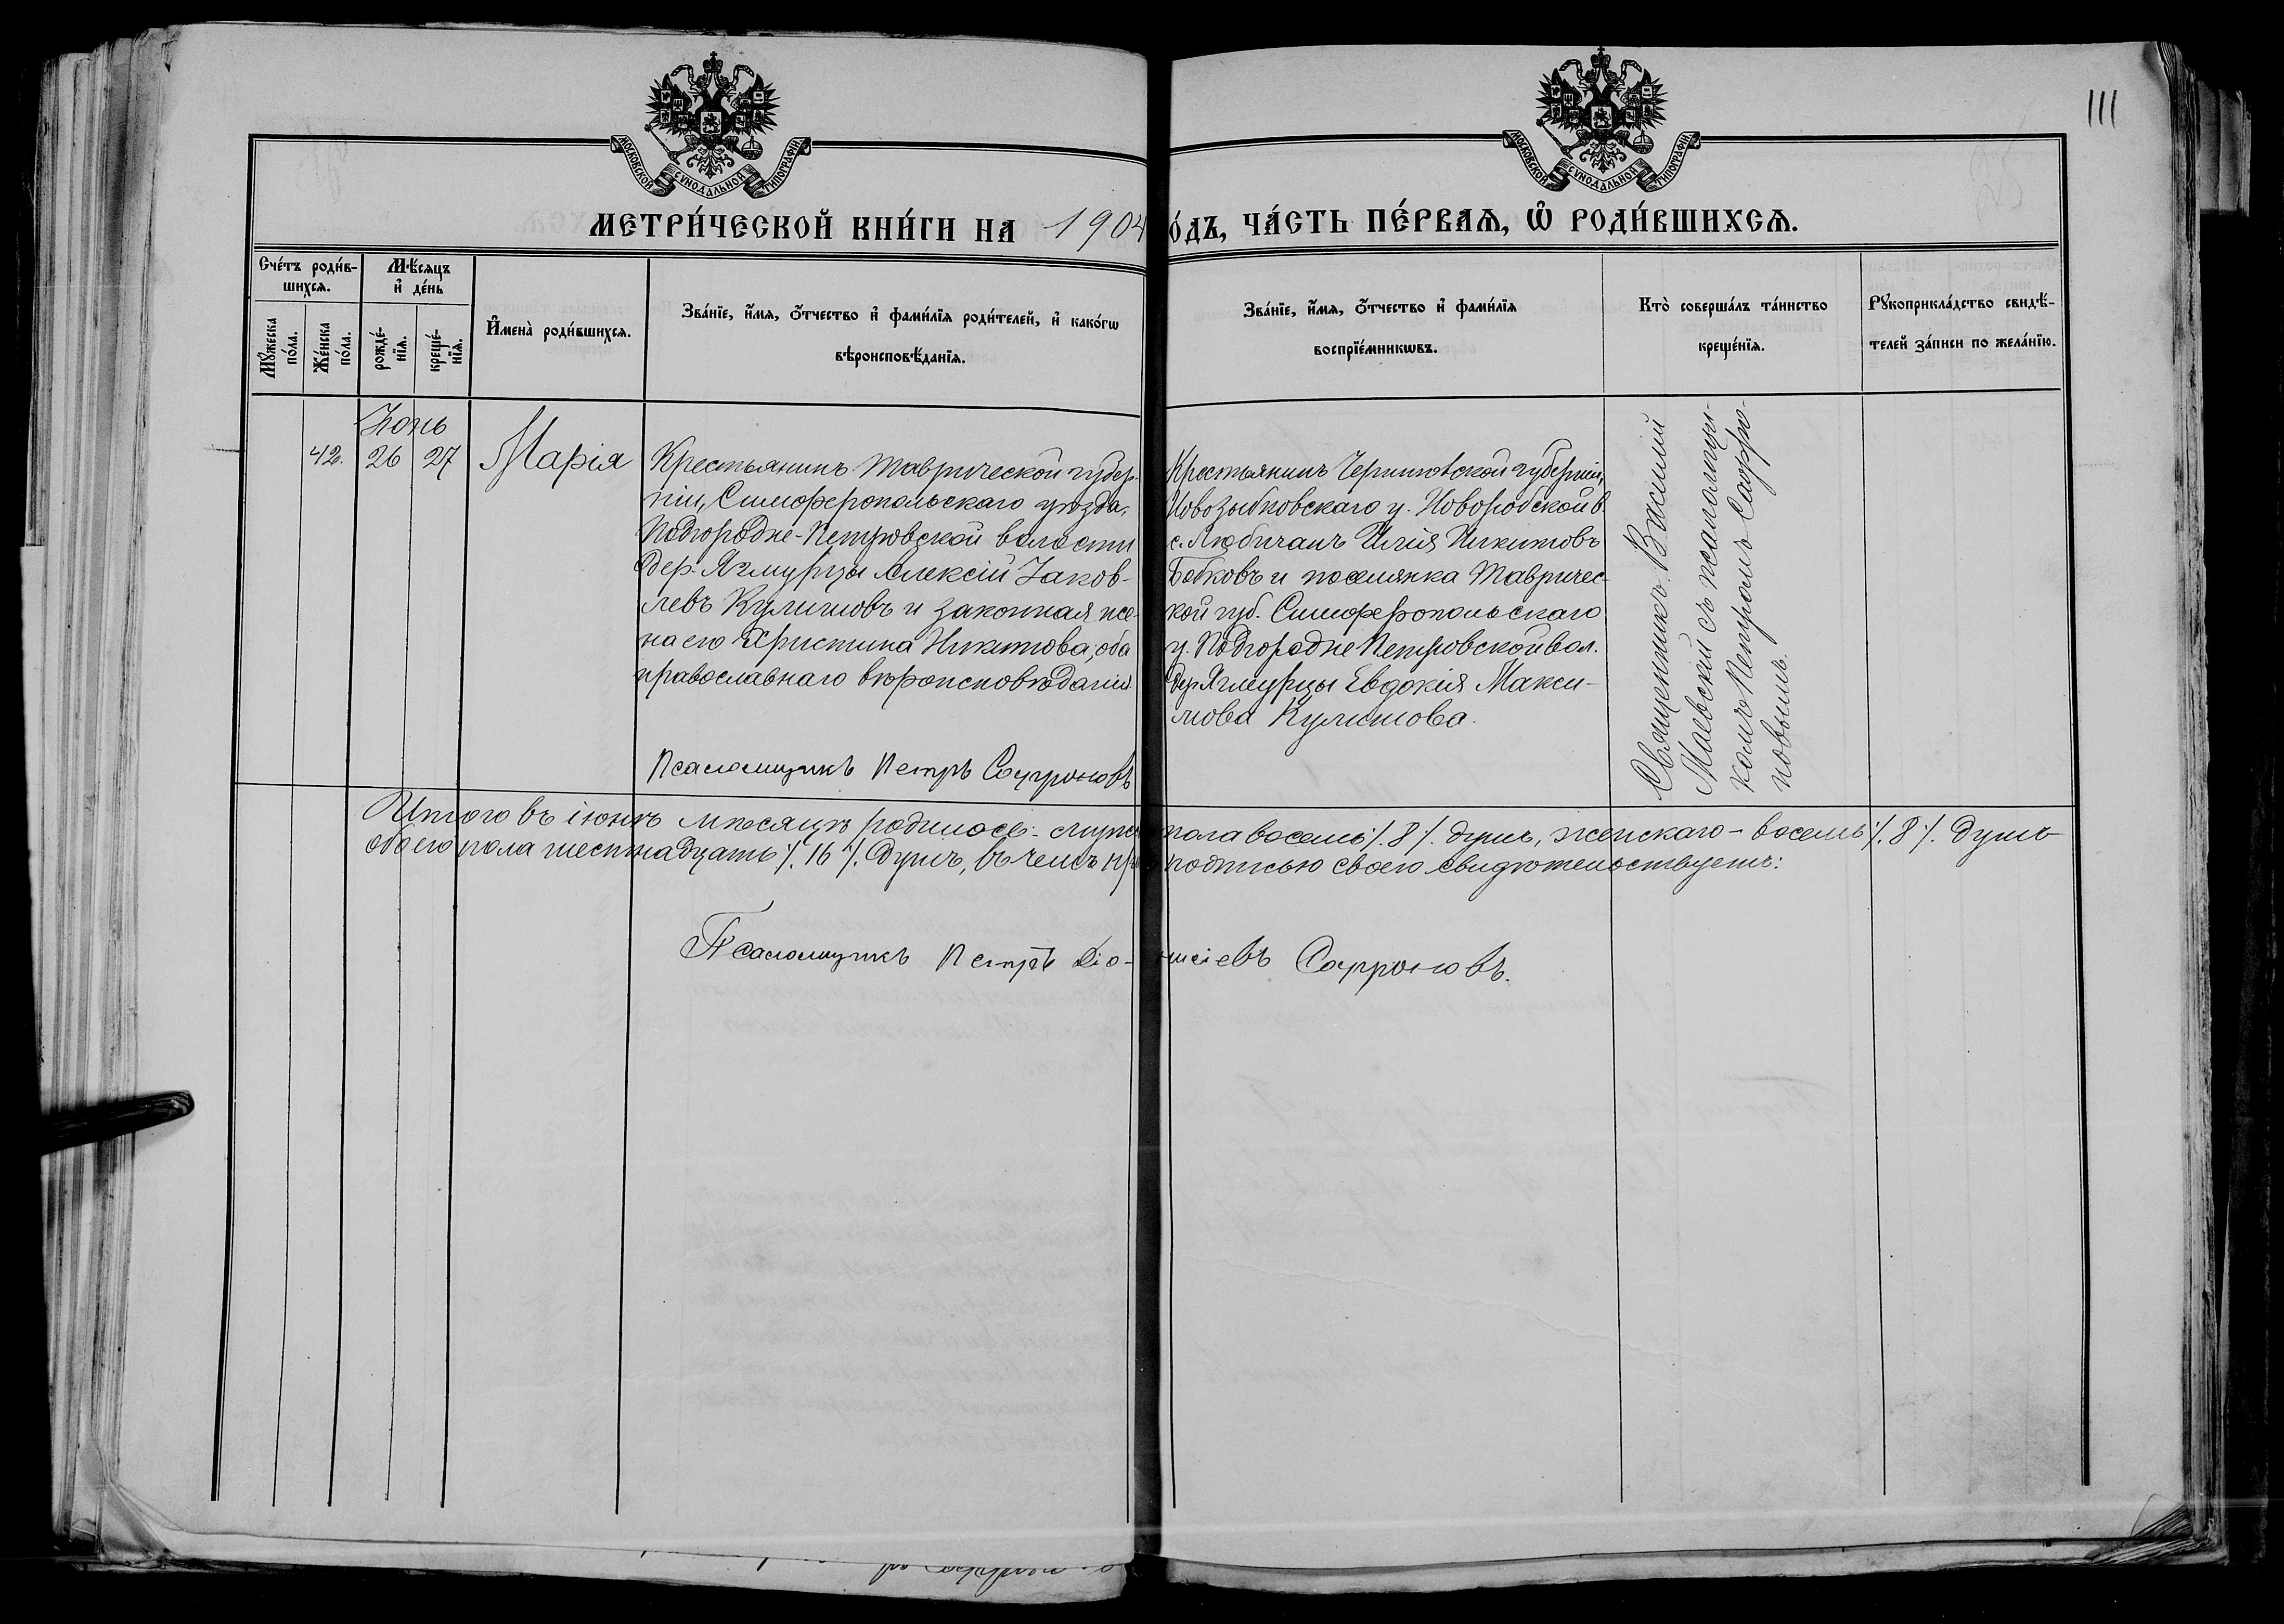 111
МОСКОВСКОЙ СѴНОДАЛЬНОЙ ТИПОГРАФІИ
МОСКОВСКОЙ СѴНОДАЛЬНОЙ ТИПОГРАФІИ
МЕТРИ́ЧЕСКОЙ КНИ́ГИ НА 1904
О́ДЪ, ЧА́СТЬ ПЕ́РВАѦ, Ѽ РОДИ́ВШИХСѦ.
Сче́тъ роди́в-
шихсѧ.
Мꙋ́жеска
по́ла.
Же́нска
по́ла.
Мѣ́сѧцъ
и҆ де́нь
рожде́-
нїѧ.
креще́-
нїѧ.
И҆мена̀ роди́вшихсѧ.
Зва́нїе, и҆́мѧ, ѻ҆́тчество и҆ фами́лїѧ роди́телей, и҆ како́гѡ
вѣроисповѣ́данїѧ.
Зва́нїе, и҆́мѧ, ѻ҆́тчество и҆ фами́лїѧ
воспрїе́мникѡвъ.
Кто̀ соверша́лъ та́инство
креще́нїѧ.
Рꙋкоприкла́дство свидѣ́-
телей за́писи по жела́нїю.
Іюнь
42. 26 27 Марія
Крестьянинъ Таврической губер-
ніи, Симферопольскаго уѣзда,
Подгородне-Петровской волости
дер. Ягмурцы Алексій Іаков-
левъ Кулишовъ и законная же-
на его Христина Никитова, оба
православнаго вѣроисповѣданія
Псаломщикъ Петръ Софроновъ
Крестьянинъ Черниговской губерніи,
Новозыбковскаго у. Новоробской в.
с. Любичанъ Илія Никитовъ
Бобковъ и поселянка Тавричес-
кой губ. Симферопольскаго
у. Подгородне Петровской вол.
дер. Ягмурцы Евдокія Макси-
мова Кулишова.
Священникъ Василий
Маевскій съ псаломщи-
комъ Петромъ Софро-
новымъ.
Итого въ іюнѣ мѣсяцѣ родилось: муже пола восемь ./. 8 ./. душъ, женскаго - восемь ./. 8 ./. душъ
обоего пола шестнадцать ./. 16 ./. душъ, въ чемъ подписью своею свидѣтельствуетъ:
Псаломщикъ Петръ Діо- нисіевъ Софроновъ.